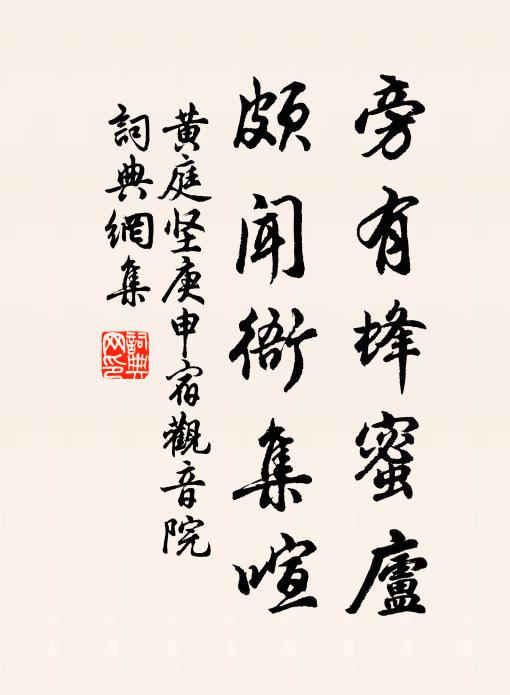 旁有蜂蜜廬
頗聞衙集喧
黃庭坚庚申宿觀音院
詞典網集
詞典网印